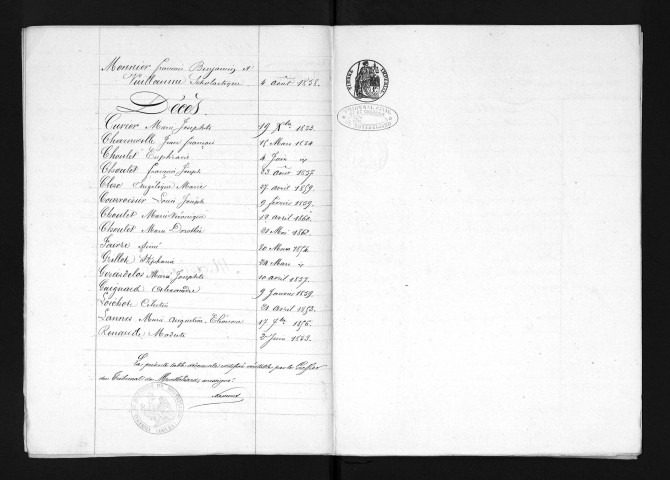 Monnier francois Benjamin et
Vuillaume Scholastique 4 août 1858.
Décès.
Cuvier Marie Josephte 19 Xbre 1853.
Charmoille Jean francois 15 Mars 1854
Choulet Euphrasie 4 Juin id
Choulet francois Joseph 23 août 1857
Clerc Angélique Marie 27 avril 1859.
Courvoisier Louis Joseph 9 février 1859.
Choulet Marie Véronique 12 avril 1860.
Choulet Marie Dorothée 21 Mai 1862.
Faivre Aimé 20 Mars 1854.
Grillot Stéphanie 24 Mars id
Gerardelos Marie Josephte 10 avril 1857.
Guignard Alexandre 9 Janvier 1859.
Loichot Celestin 21 avril 1853.
Lannes Marie Augustine Eléonore 17 7bre 1856.
Renaude Modeste 2 Juin 1853.
La présente table décennale certifiée véritable par le Greffier
du Tribunal de Montbéliard, soussigné.
TIMBRE IMPERIAL